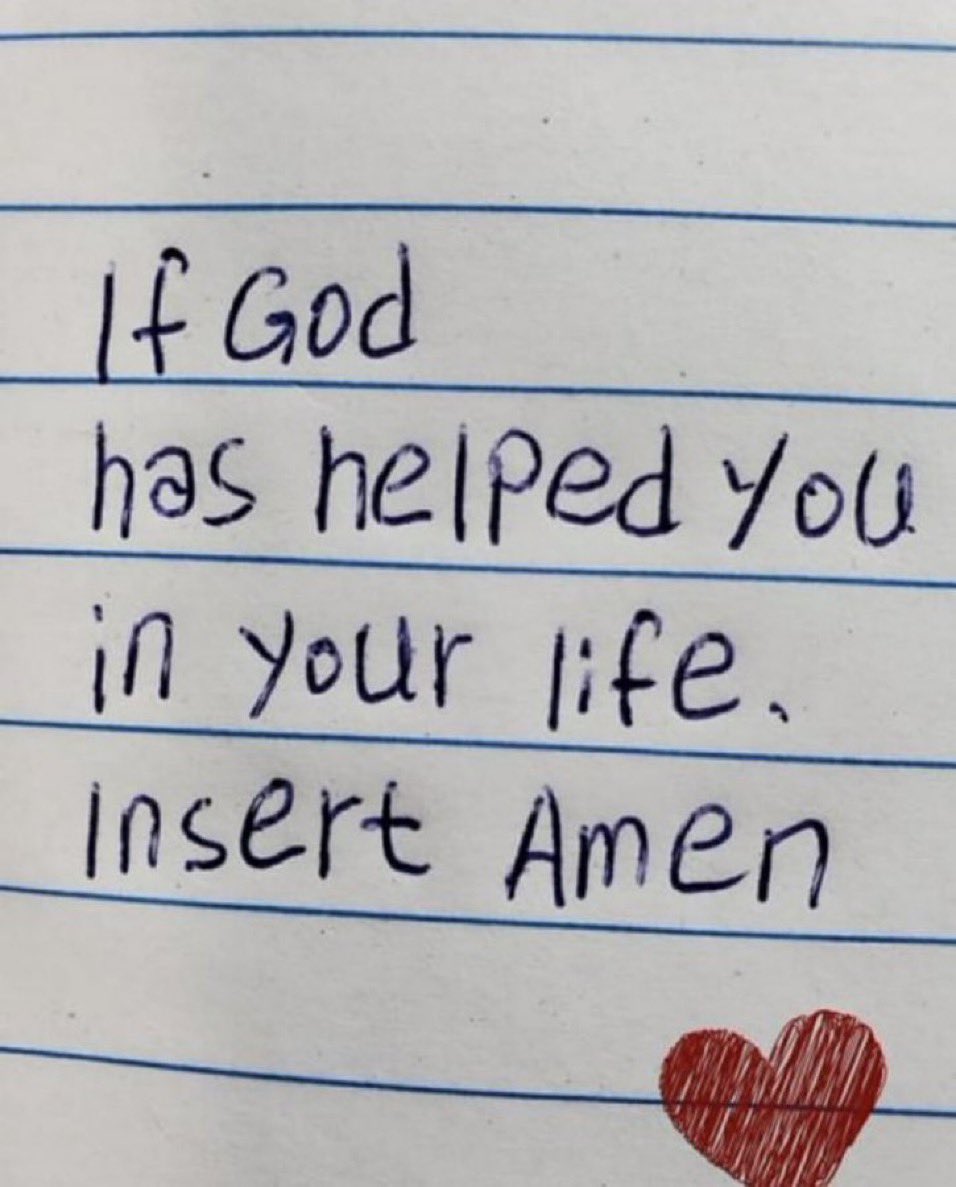 If God
has helped you
in your life.
Insert Amen